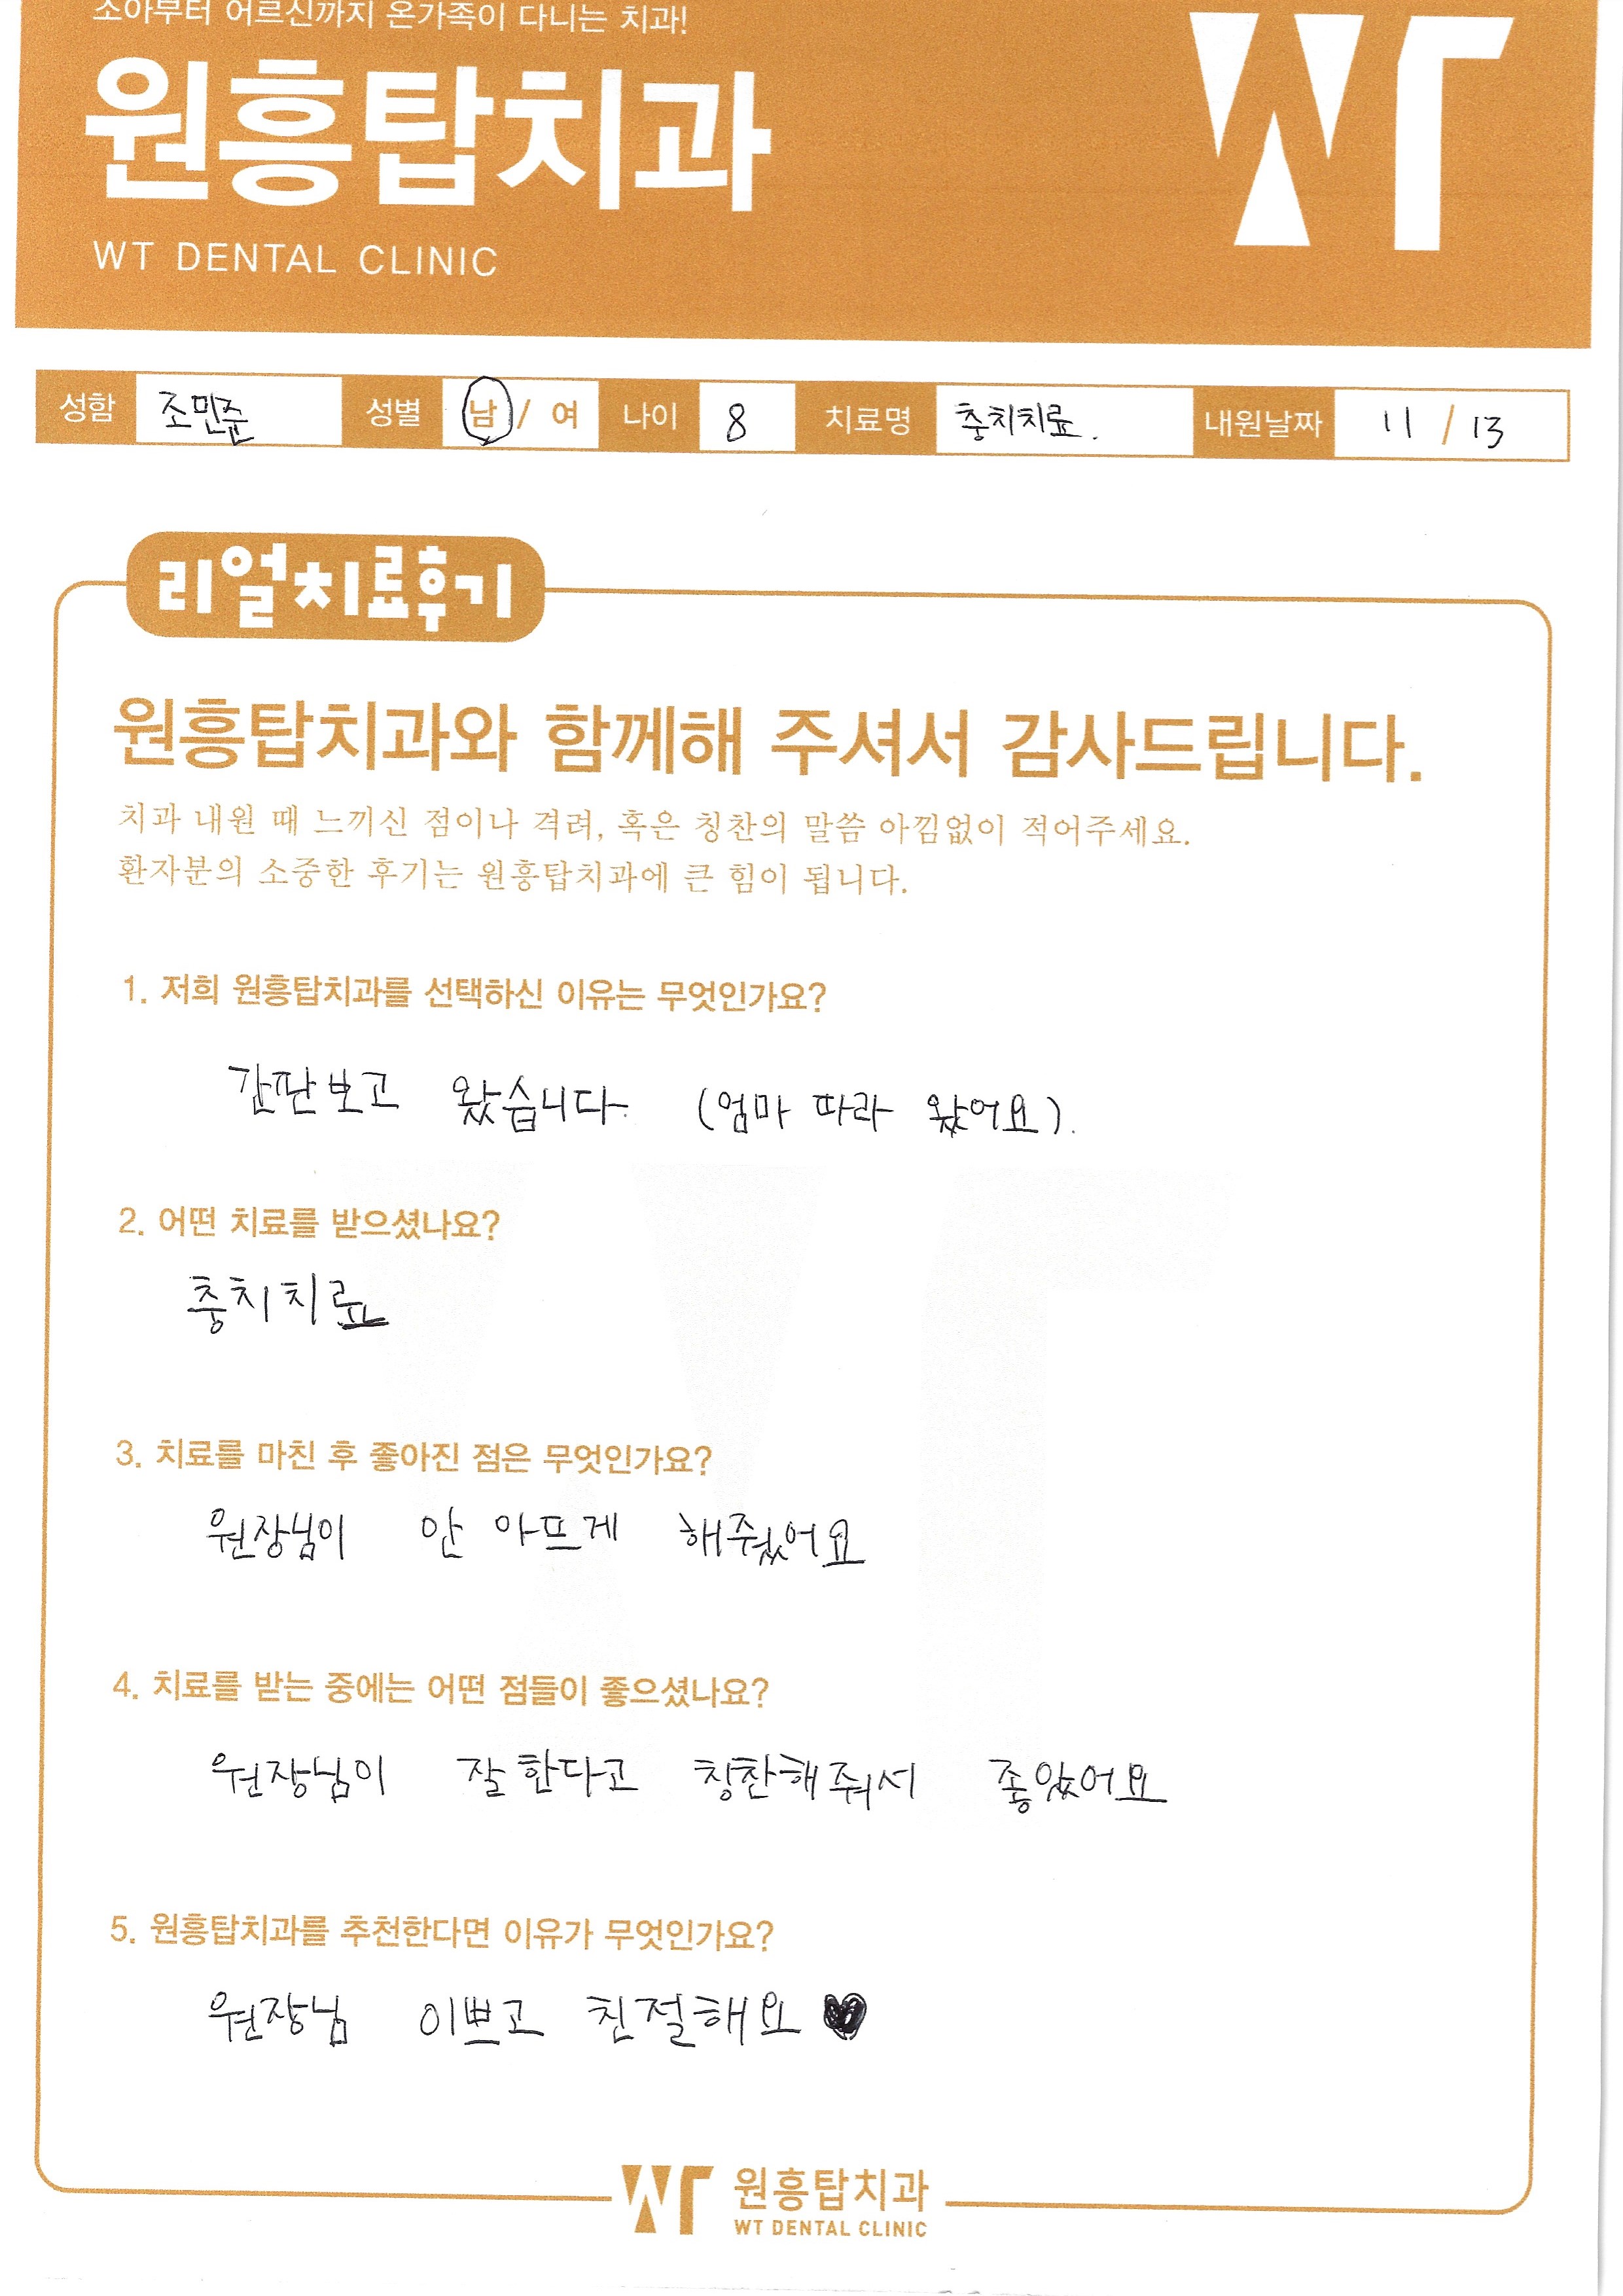 소아부터 어르신까지 온가족이 다니는 치과!
원흥탑치과
WT
WT DENTAL CLINIC
성함 조민준 성별 남 / 여 나이 8 치료명 충치치료. 내원날짜 11 / 13
리얼치료후기
원흥탑치과와 함께해 주셔서 감사드립니다.
치과 내원 때 느끼신 점이나 격려, 혹은 칭찬의 말씀 아낌없이 적어주세요.
환자분의 소중한 후기는 원흥탑치과에 큰 힘이 됩니다.
1. 저희 원흥탑치과를 선택하신 이유는 무엇인가요?
간판보고 왔습니다. (엄마 따라 왔어요).
2. 어떤 치료를 받으셨나요?
충치치료
3. 치료를 마친 후 좋아진 점은 무엇인가요?
원장님이 안 아프게 해줬어요
4. 치료를 받는 중에는 어떤 점들이 좋으셨나요?
원장님이 잘한다고 칭찬해줘서 좋았어요
5. 원흥탑치과를 추천한다면 이유가 무엇인가요?
원장님 이쁘고 친절해요 ♥
WT 원흥탑치과
WT DENTAL CLINIC